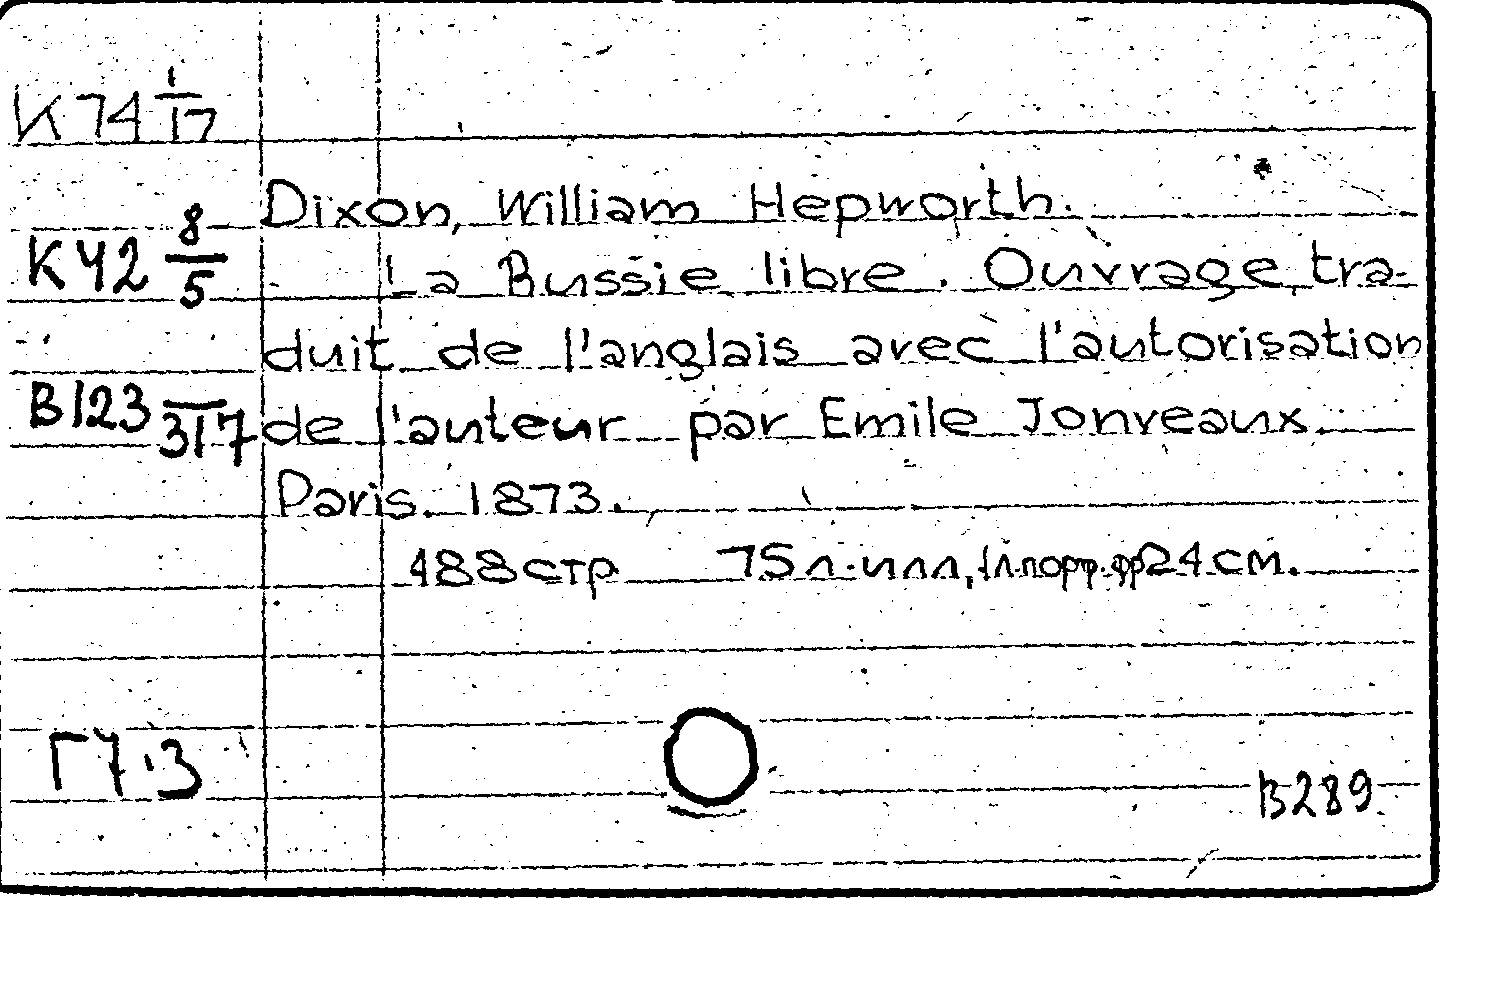 К74 1/17
Dixon, William Hepworth.
К42 8/5
La Russie libre. Ouvrage tra-
duit de l'anglais avec l'autorisation
В123 /317
de l'auteur par Emile Jonveaux.
Paris. 1873.
488 стр 75 л. илл, 1 л. портр. фр 24 см.
Г7.3
В289